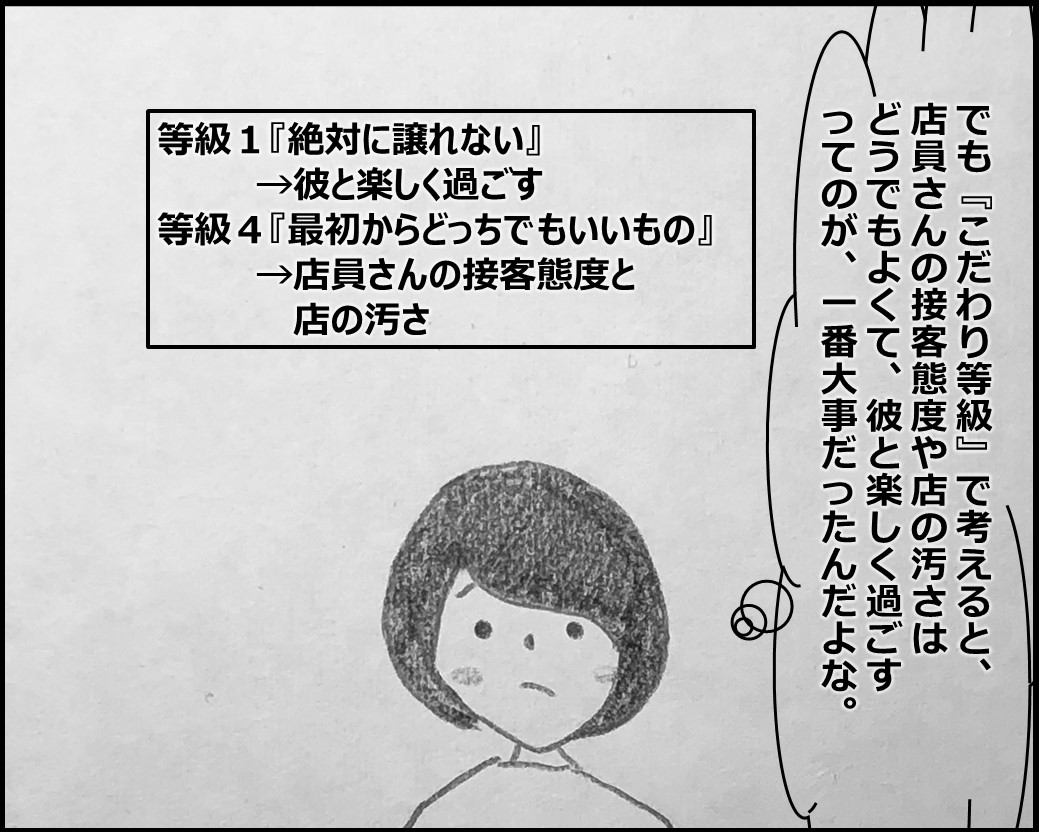 でも『こだわり等級』で考えると、
店員さんの接客態度や店の汚さは
どうでもよくて、彼と楽しく過ごす
ってのが、一番大事だったんだよな。
等級１『絶対に譲れない』
→彼と楽しく過ごす
等級４『最初からどっちでもいいもの』
→店員さんの接客態度と
店の汚さ